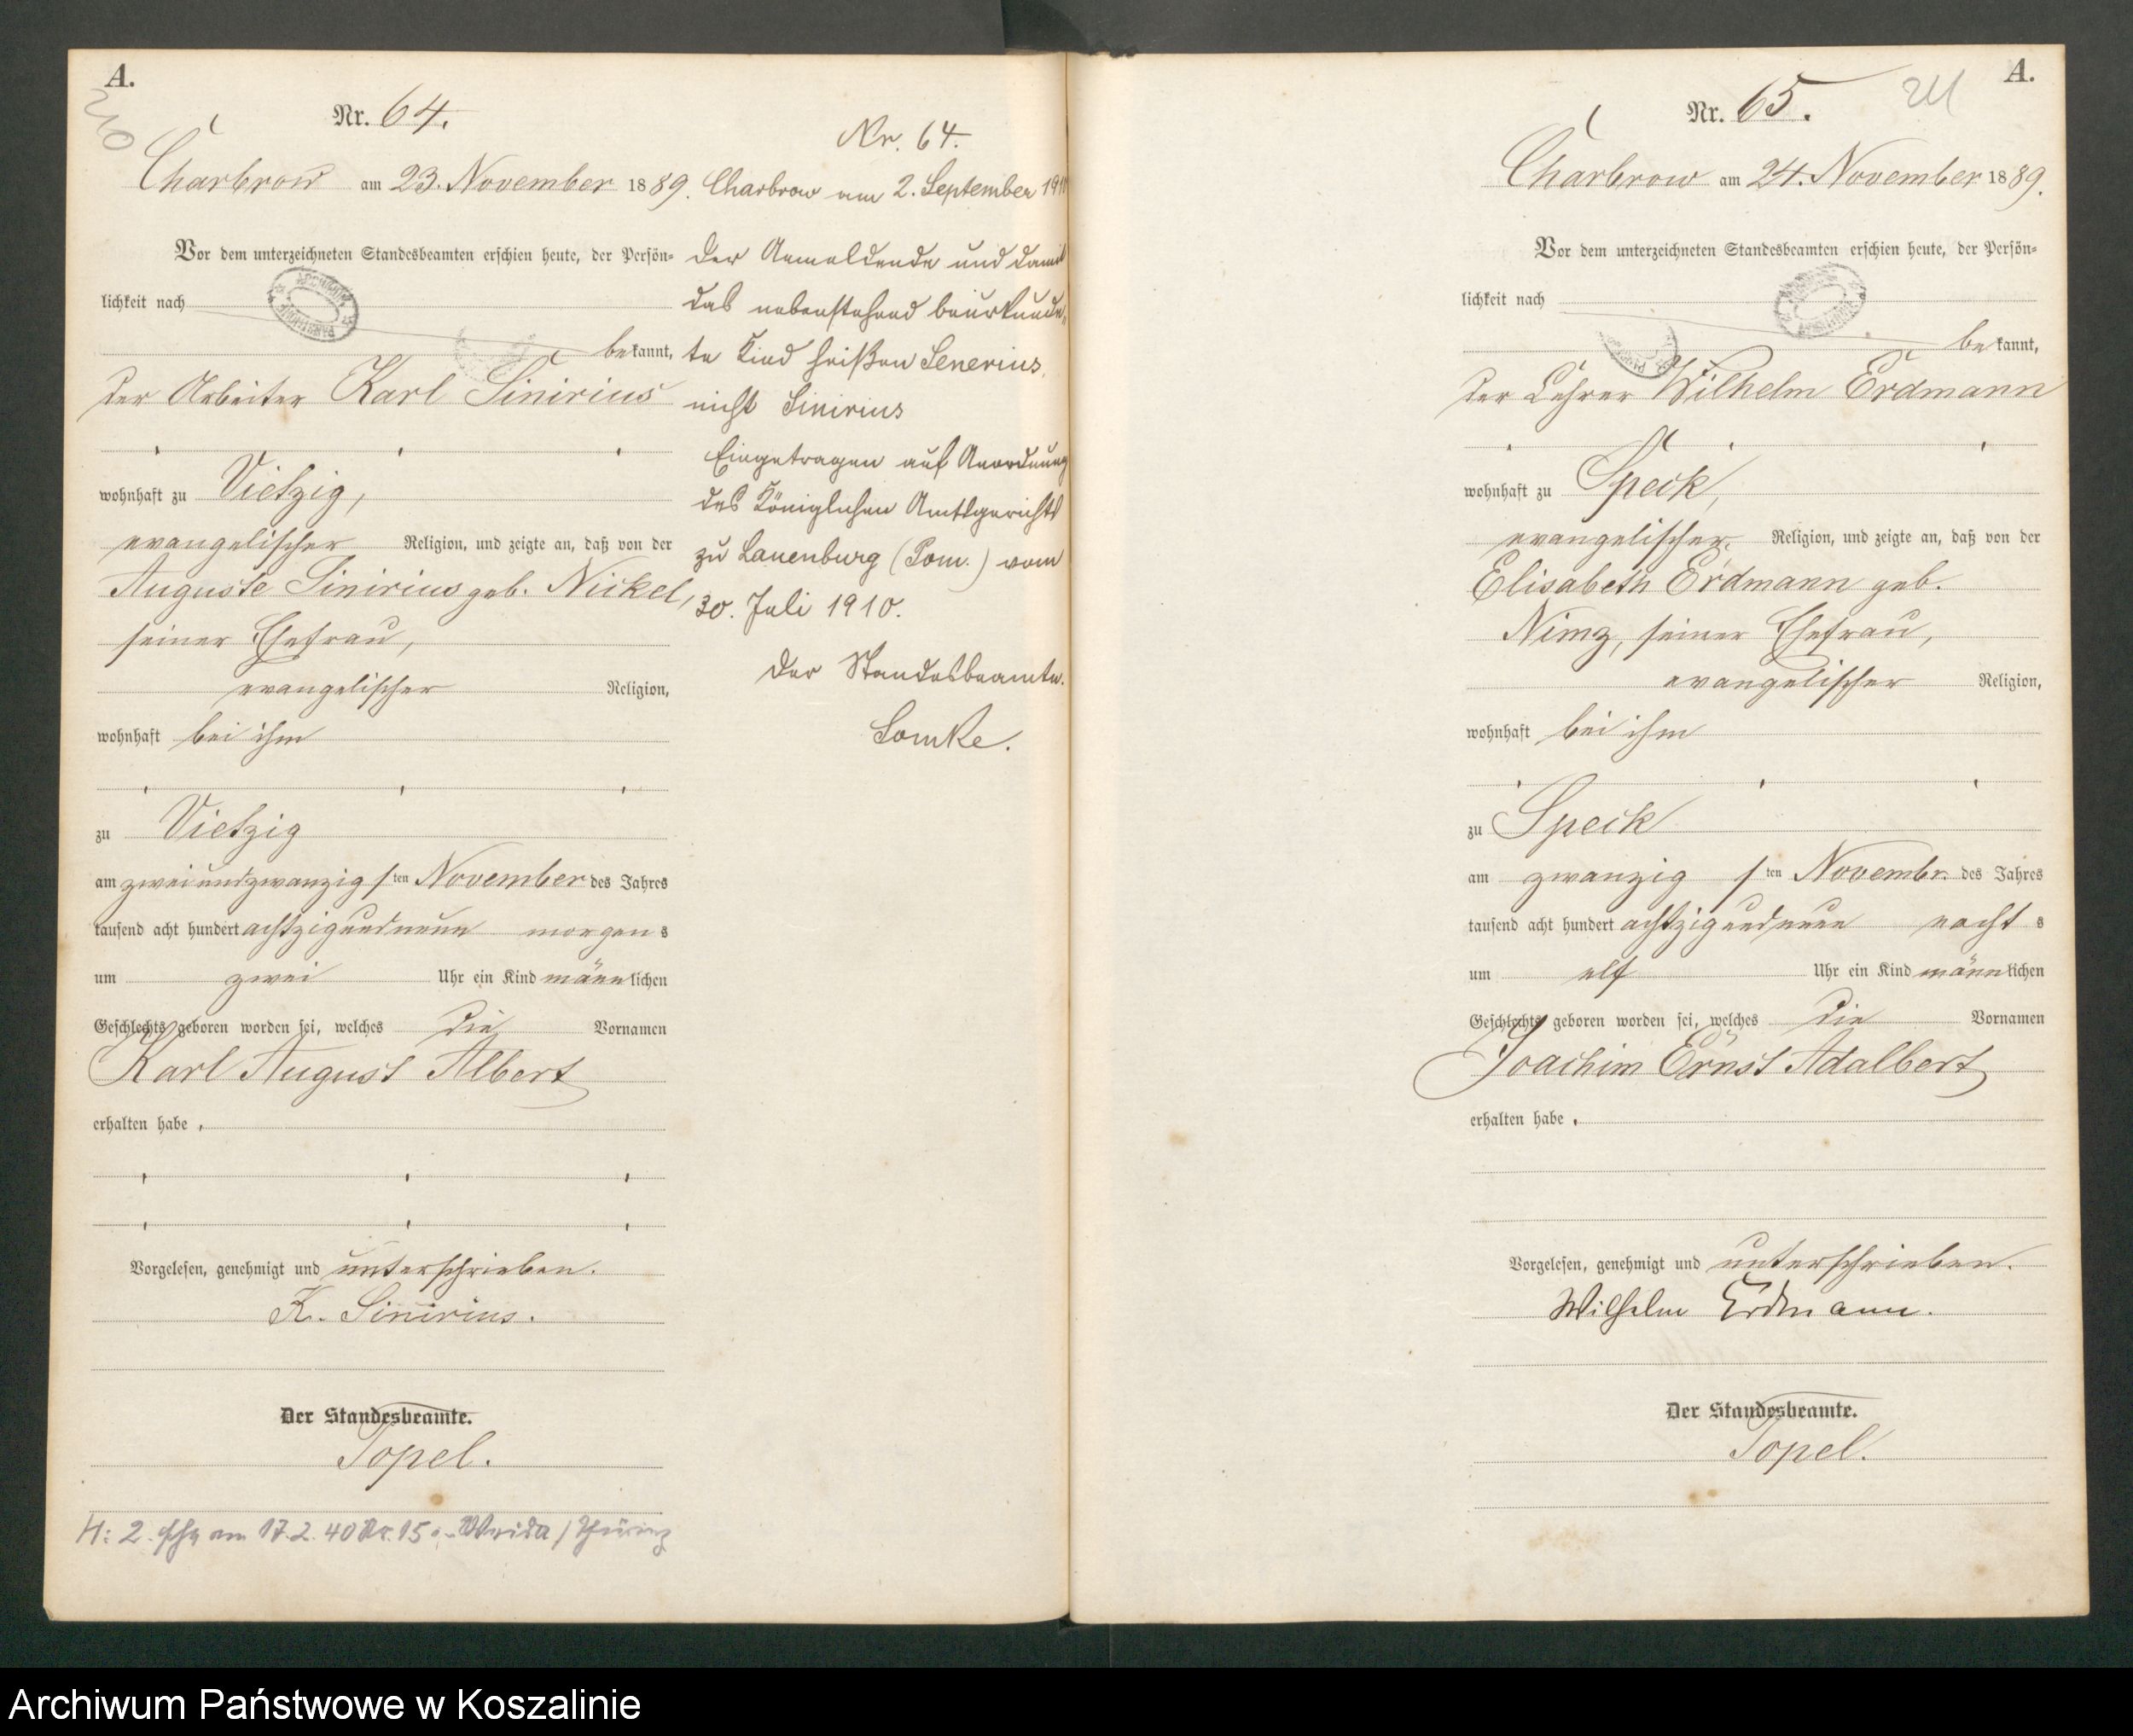 A.
210
Nr. 64.
Charbrow am 23. November 1889.
Vor dem unterzeichneten Standesbeamten erschien heute, der Persön-
lichkeit nach
bekannt,
der Arbeiter Karl Sinirius
wohnhaft zu Vietzig,
evangelischer Religion, und zeigte an, daß von der
Auguste Sinirius geb. Nickel,
seiner Ehefrau,
evangelischer Religion,
wohnhaft bei ihm
zu Vietzig
am zweiundzwanzigsten November des Jahres
tausend acht hundert achtzig und neun morgens
um zwei Uhr ein Kind männlichen
Geschlechts geboren worden sei, welches die Vornamen
Karl August Albert
erhalten habe.
Vorgelesen, genehmigt und unterschrieben.
K. Sinirius.
Der Standesbeamte.
Topel.
H: 2. am 17.2.40 Nr. 15 Weida / Thüring
Nr. 64.
Charbrow am 2. September 1910
Der Anmeldende und damit
das nebenstehend beurkunde-
te Kind heißen Senerius,
nicht Sinirius
Eingetragen auf Anordnung
des Königlichen Amtsgerichts
zu Lauenburg (Pom.) vom
30. Juli 1910.
Der Standesbeamte.
Lomke.
A.
211
Nr. 65.
Charbrow am 24. November 1889.
Vor dem unterzeichneten Standesbeamten erschien heute, der Persön-
lichkeit nach
bekannt,
der Lehrer Wilhelm Erdmann
wohnhaft zu Speck,
evangelischer Religion, und zeigte an, daß von der
Elisabeth Erdmann geb.
Nimz, seiner Ehefrau,
evangelischer Religion,
wohnhaft bei ihm
zu Speck
am zwanzigsten Novembr. des Jahres
tausend acht hundert achtzig und neun nachts
um elf Uhr ein Kind männlichen
Geschlechts geboren worden sei, welches die Vornamen
Joachim Ernst Adalbert
erhalten habe.
Vorgelesen, genehmigt und unterschrieben.
Wilhelm Erdmann.
Der Standesbeamte.
Topel.
Archiwum Państwowe w Koszalinie